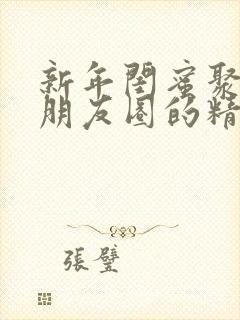 新年閨蜜聚
朋友圈的精
張璧